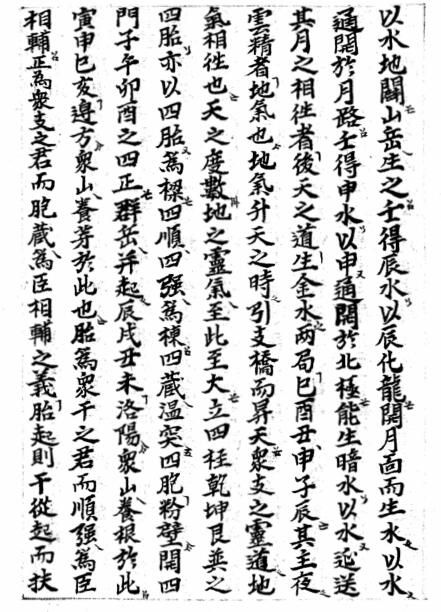 以水地闢山岳生之壬得辰水以辰化龍開月面而生水以水
通開於月路壬得申水以申通開於北極能生暗水以水延送
其月之相徃者後天之道生金水两局巳酉丑申子辰其主夜
雲精者地氣也地氣升天之時引支橋而昇天衆支之靈道地
氣相徃也天之度數地之靈氣至此至大立四柱乾坤艮巽之
四胎亦以四胎為樑四順四强為棟四藏温突四胞粉壁開四
門子午卯酉之四正群岳并起辰戌丑未洛陽衆山養根於此
寅申巳亥邉方衆山養芽於此也胎為衆干之君而順强為臣
相輔正為衆支之君而胞藏為臣相輔之義胎起則干從起而扶